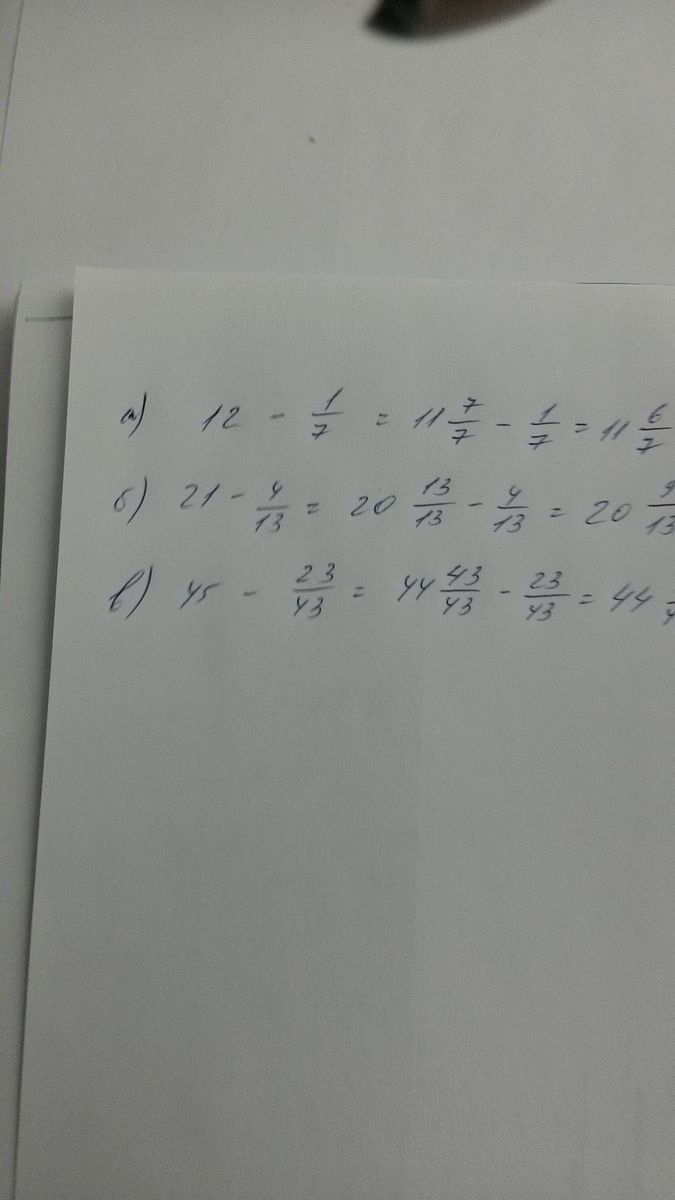 а) 12 - 1/7 = 11 7/7 - 1/7 = 11 6/7
б) 21 - 4/13 = 20 13/13 - 4/13 = 20 9/13
в) 45 - 23/43 = 44 43/43 - 23/43 = 44